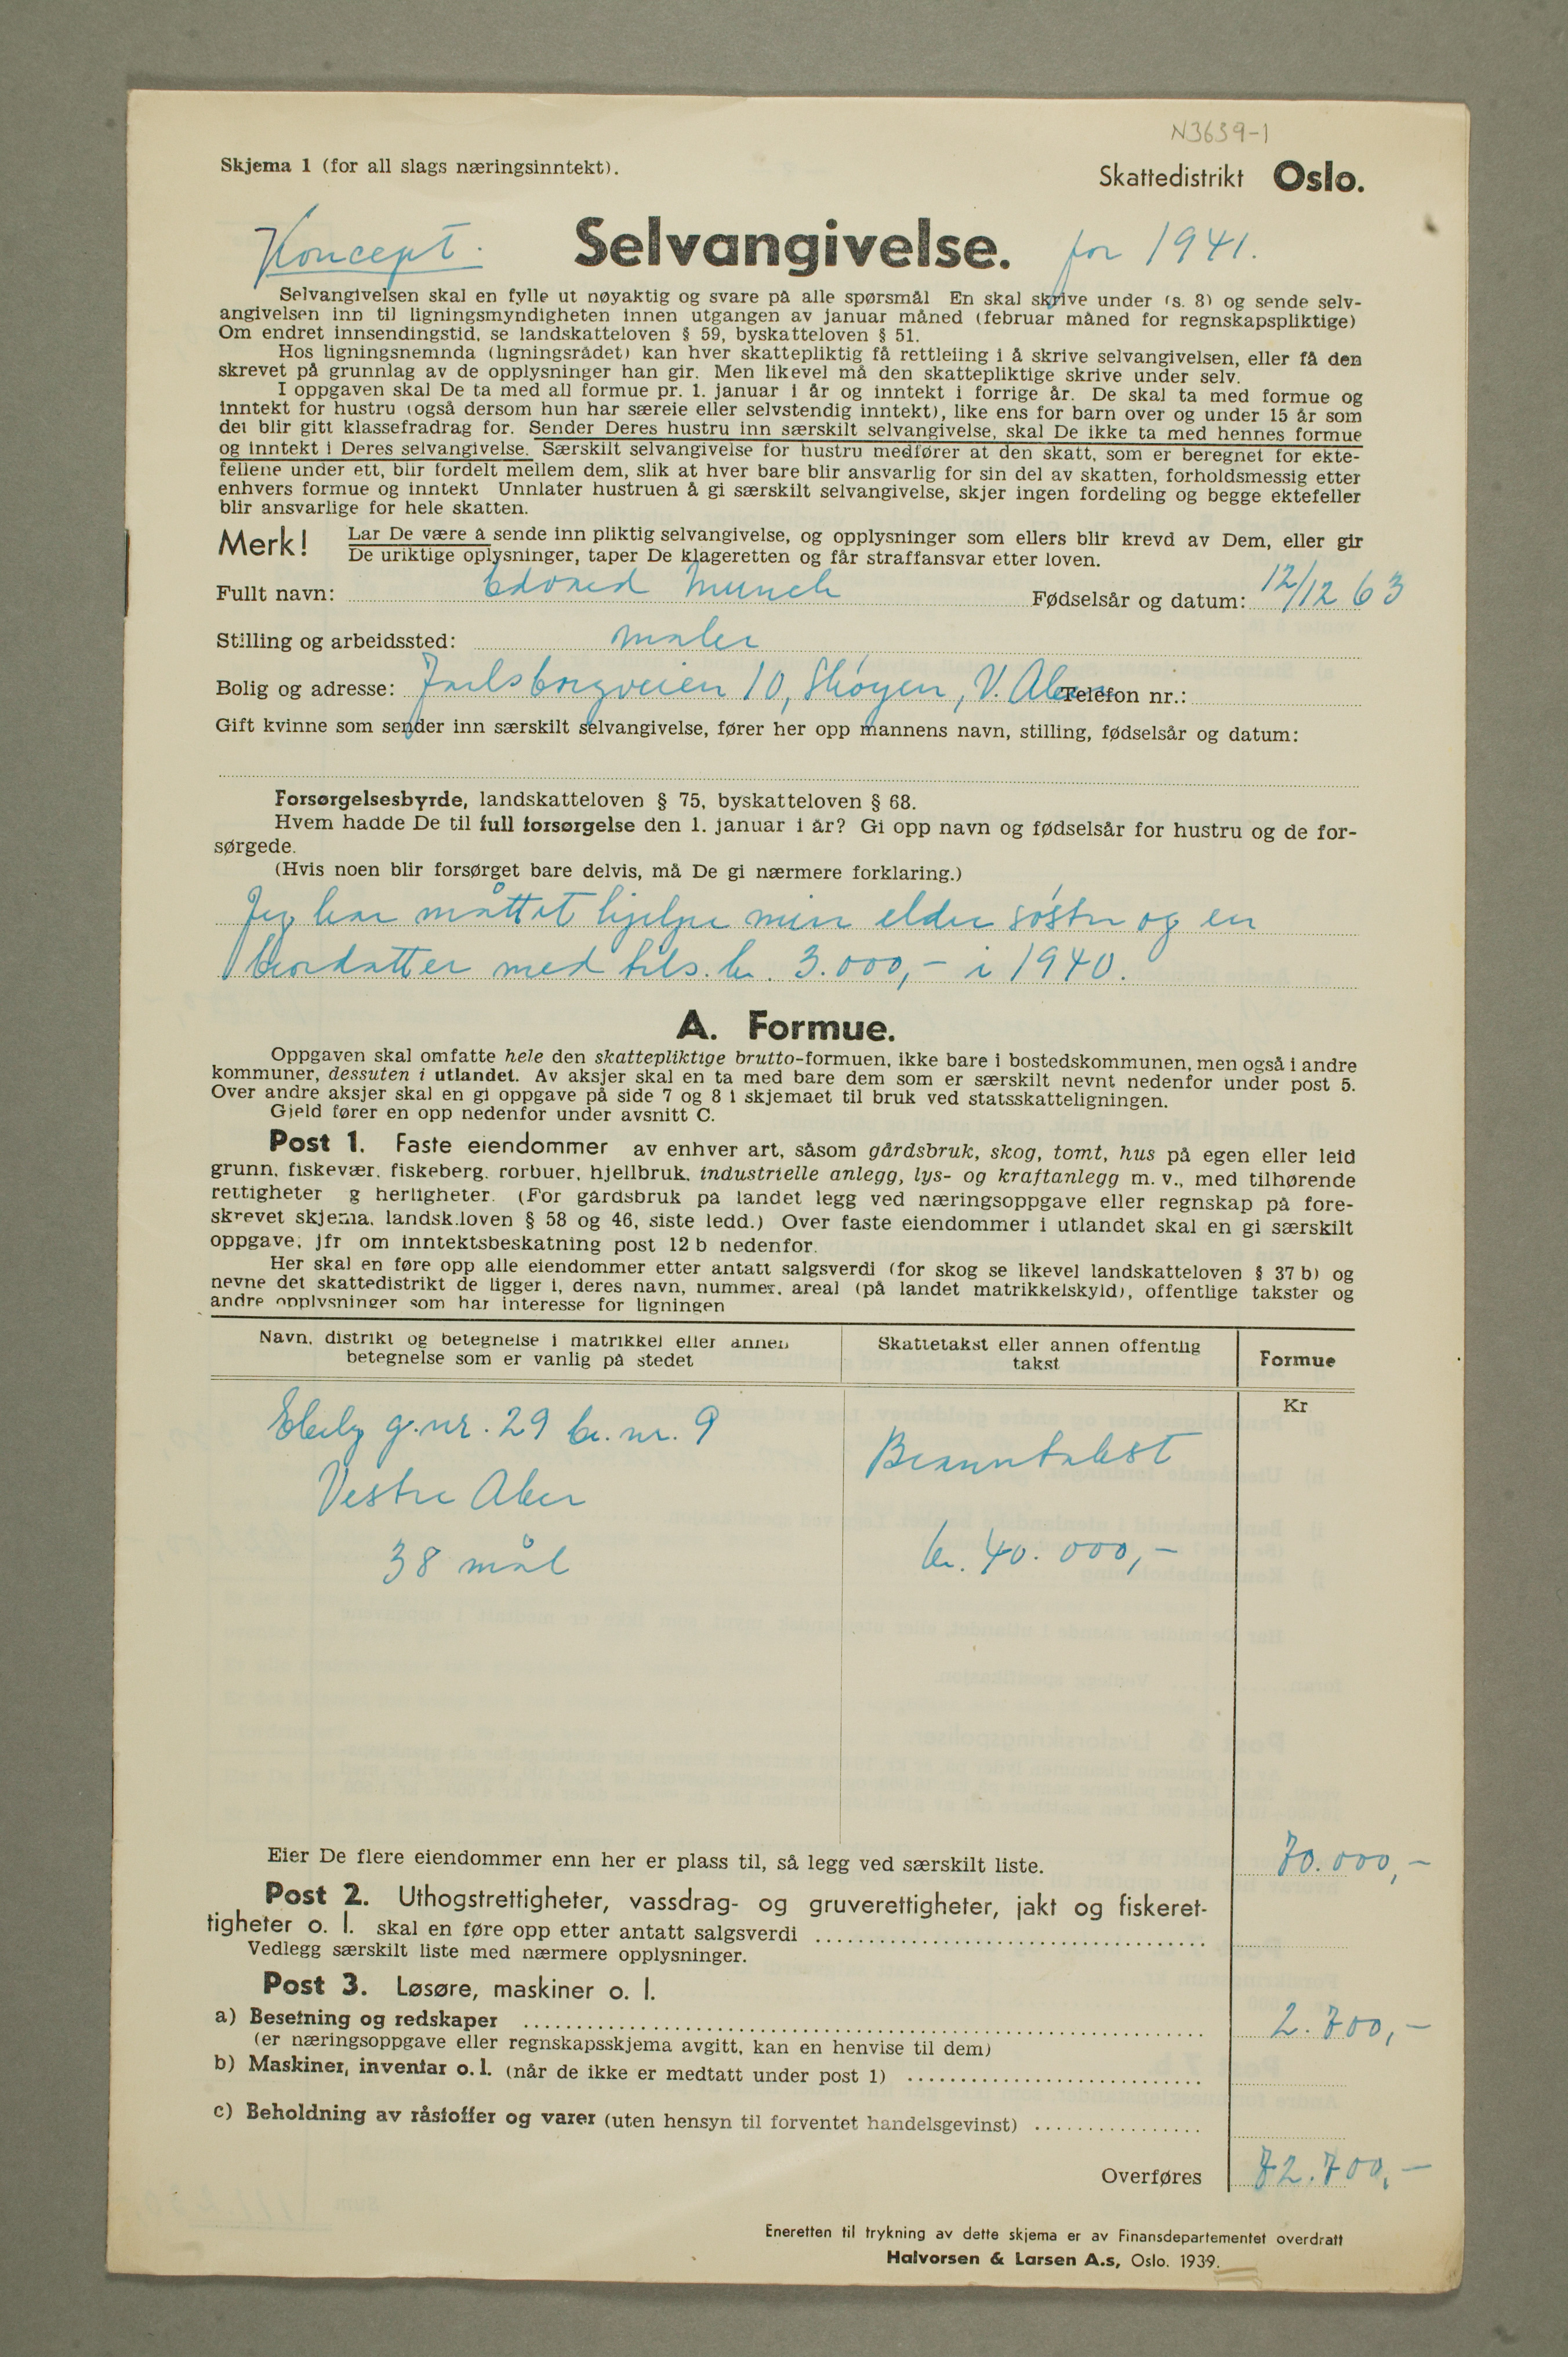 N3639-1
Skjema 1 (for all slags næringsinntekt).
Skattedistrikt Oslo.
Koncept. Selvangivelse. for 1941.
Selvangivelsen skal en fylle ut nøyaktig og svare på alle spørsmål En skal skrive under (s. 8) og sende selv-
angivelsen inn til ligningsmyndigheten innen utgangen av januar måned (februar måned for regnskapspliktige)
Om endret innsendingstid, se landskatteloven § 59, byskatteloven § 51.
Hos ligningsnemnda (ligningsrådet) kan hver skattepliktig få rettleiing i å skrive selvangivelsen, eller få den
skrevet på grunnlag av de opplysninger han gir. Men likevel må den skattepliktige skrive under selv.
I oppgaven skal De ta med all formue pr. 1. januar i år og inntekt i forrige år. De skal ta med formue og
inntekt for hustru (også dersom hun har særeie eller selvstendig inntekt), like ens for barn over og under 15 år som
det blir gitt klassefradrag for. Sender Deres hustru inn særskilt selvangivelse, skal De ikke ta med hennes formue
og inntekt i Deres selvangivelse. Særskilt selvangivelse for hustru medfører at den skatt, som er beregnet for ekte-
fellene under ett, blir fordelt mellem dem, slik at hver bare blir ansvarlig for sin del av skatten, forholdsmessig etter
enhvers formue og inntekt Unnlater hustruen å gi særskilt selvangivelse, skjer ingen fordeling og begge ektefeller
blir ansvarlige for hele skatten.
Merk! Lar De være å sende inn pliktig selvangivelse, og opplysninger som ellers blir krevd av Dem, eller gir
De uriktige oplysninger, taper De klageretten og får straffansvar etter loven.
Fullt navn: Edvard Munch Fødselsår og datum: 12/12 63
Stilling og arbeidssted: maler
Bolig og adresse: Jarlsborgveien 10, Skøyen, V. Aker Telefon nr.:
Gift kvinne som sender inn særskilt selvangivelse, fører her opp mannens navn, stilling, fødselsår og datum:
Forsørgelsesbyrde, landskatteloven § 75, byskatteloven § 68.
Hvem hadde De til full forsørgelse den 1. januar i år? Gi opp navn og fødselsår for hustru og de for-
sørgede.
(Hvis noen blir forsørget bare delvis, må De gi nærmere forklaring.)
Jeg har måttet hjelpe min eldre søster og en
brordatter med tils. kr. 3.000,- i 1940.
A. Formue.
Oppgaven skal omfatte hele den skattepliktige brutto-formuen, ikke bare i bostedskommunen, men også i andre
kommuner, dessuten i utlandet. Av aksjer skal en ta med bare dem som er særskilt nevnt nedenfor under post 5.
Over andre aksjer skal en gi oppgave på side 7 og 8 i skjemaet til bruk ved statsskatteligningen.
Gjeld fører en opp nedenfor under avsnitt C.
Post 1. Faste eiendommer av enhver art, såsom gårdsbruk, skog, tomt, hus på egen eller leid
grunn, fiskevær, fiskeberg, rorbuer, hjellbruk, industrielle anlegg, lys- og kraftanlegg m. v., med tilhørende
rettigheter g herligheter. (For gårdsbruk på landet legg ved næringsoppgave eller regnskap på fore-
skrevet skjema, landsk.loven § 58 og 46, siste ledd.) Over faste eiendommer i utlandet skal en gi særskilt
oppgave, jfr om inntektsbeskatning post 12 b nedenfor.
Her skal en føre opp alle eiendommer etter antatt salgsverdi (for skog se likevel landskatteloven § 37 b) og
nevne det skattedistrikt de ligger i, deres navn, nummer, areal (på landet matrikkelskyld), offentlige takster og
andre opplysninger som har interesse for ligningen
Navn, distrikt og betegnelse i matrikkel eller annen
betegnelse som er vanlig på stedet
Skattetakst eller annen offentlig
takst
Formue
Kr
Ekely g.nr. 29 br. nr. 9
Vestre Aker
38 mål
Branntakst
kr. 40.000,-
Eier De flere eiendommer enn her er plass til, så legg ved særskilt liste. 70.000,-
Post 2. Uthogstrettigheter, vassdrag- og gruverettigheter, jakt og fiskeret-
tigheter o. l. skal en føre opp etter antatt salgsverdi
Vedlegg særskilt liste med nærmere opplysninger.
Post 3. Løsøre, maskiner o. l.
a) Besetning og redskaper 2.700,-
(er næringsoppgave eller regnskapsskjema avgitt, kan en henvise til dem)
b) Maskiner, inventar o. l. (når de ikke er medtatt under post 1)
c) Beholdning av råstoffer og varer (uten hensyn til forventet handelsgevinst)
Overføres 72.700,-
Eneretten til trykning av dette skjema er av Finansdepartementet overdratt
Halvorsen & Larsen A.s, Oslo. 1939.